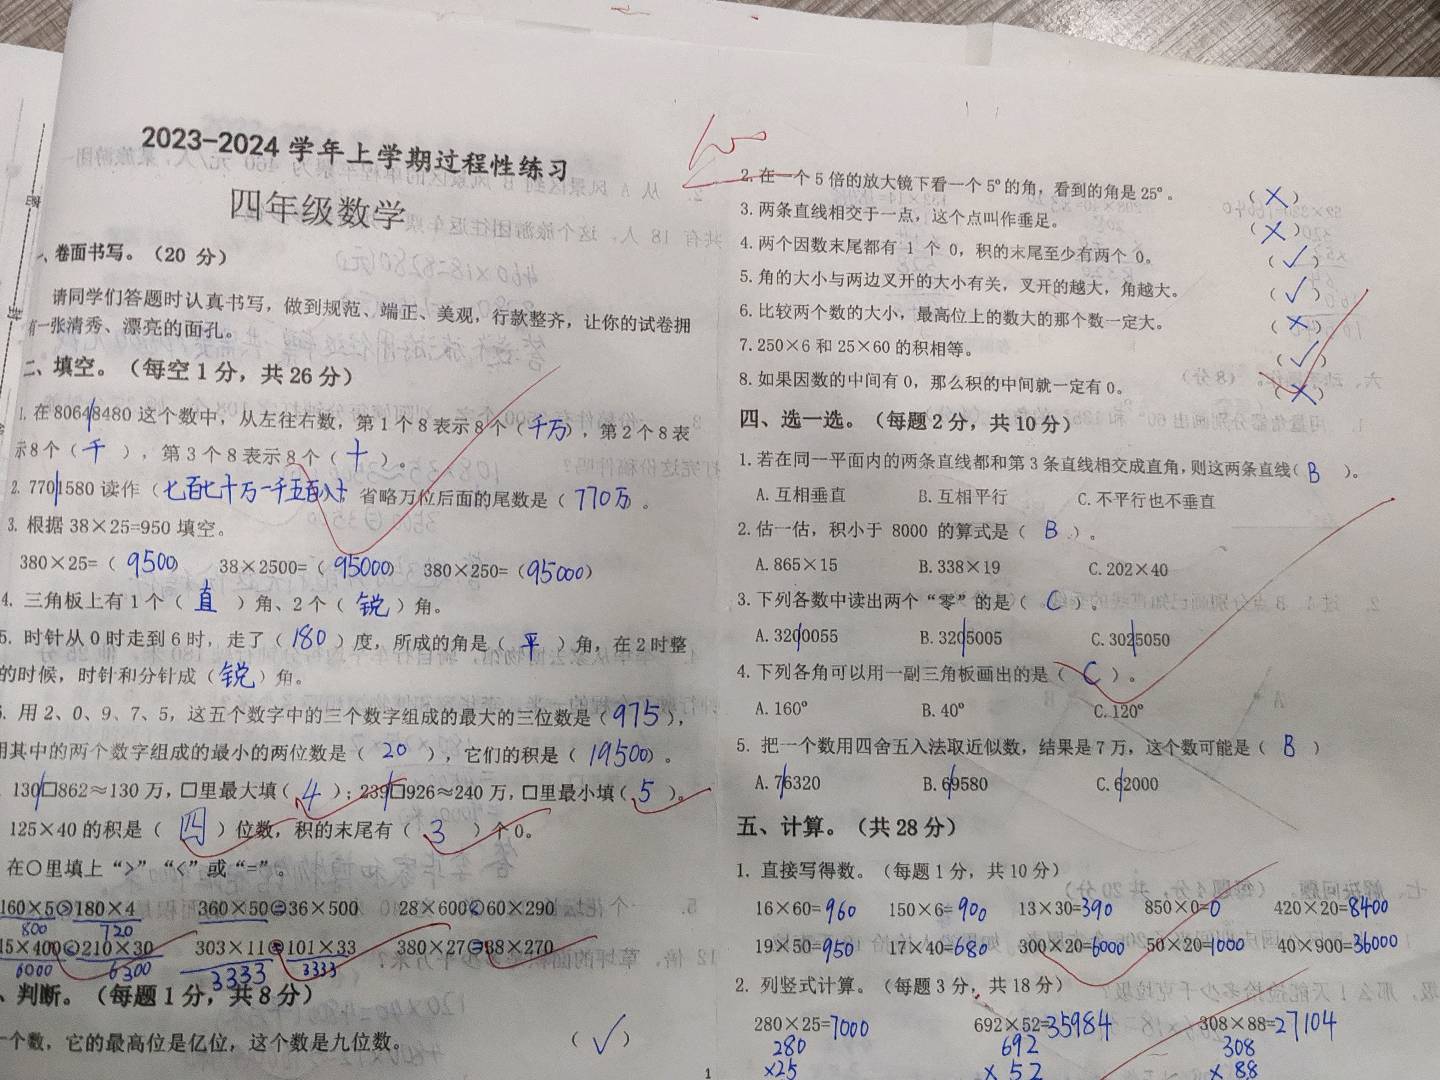 2023-2024 学年上学期过程性练习
四年级数学
、卷面书写。（20 分）
请同学们答题时认真书写，做到规范、端正、美观，行款整齐，让你的试卷拥
有一张清秀、漂亮的面孔。
二、填空。（每空 1 分，共 26 分）
1. 在 80648480 这个数中，从左往右数，第 1 个 8 表示 8 个（千万），第 2 个 8 表
示 8 个（千），第 3 个 8 表示 8 个（十）。
2. 7701580 读作（七百七十万一千五百八十 省略万位后面的尾数是（770万。
3. 根据 38×25=950 填空。
380×25=（9500） 38×2500=（95000） 380×250=（95000）
4. 三角板上有 1 个（直）角、2 个（锐）角。
5. 时针从 0 时走到 6 时，走了（180）度，所成的角是（平）角，在 2 时整
的时候，时针和分针成（锐）角。
. 用 2、0、9、7、5，这五个数字中的三个数字组成的最大的三位数是（975），
用其中的两个数字组成的最小的两位数是（20），它们的积是（19500）。
130□862≈130 万，□里最大填（4）；239□926≈240 万，□里最小填（5）。
125×40 的积是（四）位数，积的末尾有（3）个 0。
在○里填上“>”“<”或“=”。
160×5>180×4 360×50=36×500 28×600<60×290
800 720
15×400<210×30 303×11=101×33 380×27=38×270
6000 6300 3333 3333
、判断。（每题 1 分，共 8 分）
一个数，它的最高位是亿位，这个数是九位数。（√）
2. 在一个 5 倍的放大镜下看一个 5°的角，看到的角是 25°。（×）
3. 两条直线相交于一点，这个点叫作垂足。（×）
4. 两个因数末尾都有 1 个 0，积的末尾至少有两个 0。（√）
5. 角的大小与两边叉开的大小有关，叉开的越大，角越大。（√）
6. 比较两个数的大小，最高位上的数大的那个数一定大。（×）
7. 250×6 和 25×60 的积相等。（√）
8. 如果因数的中间有 0，那么积的中间就一定有 0。（×）
四、选一选。（每题 2 分，共 10 分）
1. 若在同一平面内的两条直线都和第 3 条直线相交成直角，则这两条直线（B）。
A. 互相垂直 B. 互相平行 C. 不平行也不垂直
2. 估一估，积小于 8000 的算式是（B）。
A. 865×15 B. 338×19 C. 202×40
3. 下列各数中读出两个“零”的是（C）。
A. 3200055 B. 3205005 C. 3025050
4. 下列各角可以用一副三角板画出的是（C）。
A. 160° B. 40° C. 120°
5. 把一个数用四舍五入法取近似数，结果是 7 万，这个数可能是（B）
A. 76320 B. 69580 C. 62000
五、计算。（共 28 分）
1. 直接写得数。（每题 1 分，共 10 分）
16×60=960 150×6=900 13×30=390 850×0=0 420×20=8400
19×50=950 17×40=680 300×20=6000 50×20=1000 40×900=36000
2. 列竖式计算。（每题 3 分，共 18 分）
280×25=7000 692×52=35984 308×88=27104
280 692 308
×25 ×52 ×88
1